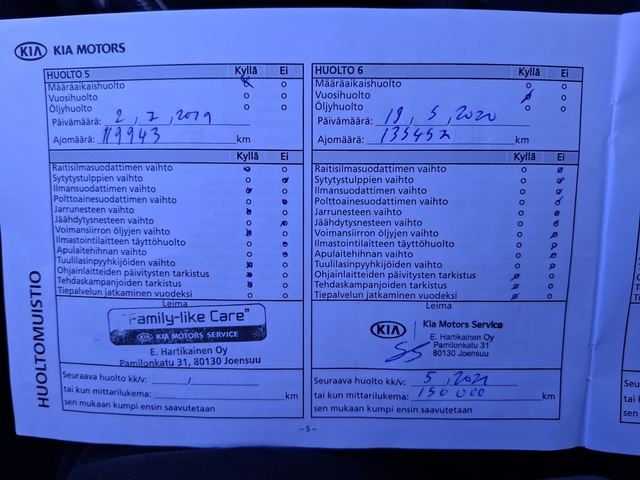 KIA KIA MOTORS
HUOLTO 5 Kyllä Ei
Määräaikaishuolto
Vuosihuolto
Öljyhuolto
Päivämäärä: 2, 7, 2019
Ajomäärä: 119943 km
Kyllä Ei
Raitisilmasuodattimen vaihto
Sytytystulppien vaihto
Ilmansuodattimen vaihto
Polttoainesuodattimen vaihto
Jarrunesteen vaihto
Jäähdytysnesteen vaihto
Voimansiirron öljyjen vaihto
Ilmastointilaitteen täyttöhuolto
Apulaitehihnan vaihto
Tuulilasinpyyhkijöiden vaihto
Ohjainlaitteiden päivitysten tarkistus
Tehdaskampanjoiden tarkistus
Tiepalvelun jatkaminen vuodeksi
Leima
"Family-like Care"
KIA KIA MOTORS SERVICE
E. Hartikainen Oy
Pamilonkatu 31, 80130 Joensuu
Seuraava huolto kk/v: /
tai kun mittarilukema: km
sen mukaan kumpi ensin saavutetaan
HUOLTO 6 Kyllä Ei
Määräaikaishuolto
Vuosihuolto
Öljyhuolto
Päivämäärä: 19, 5, 2020
Ajomäärä: 135457 km
Kyllä Ei
Raitisilmasuodattimen vaihto
Sytytystulppien vaihto
Ilmansuodattimen vaihto
Polttoainesuodattimen vaihto
Jarrunesteen vaihto
Jäähdytysnesteen vaihto
Voimansiirron öljyjen vaihto
Ilmastointilaitteen täyttöhuolto
Apulaitehihnan vaihto
Tuulilasinpyyhkijöiden vaihto
Ohjainlaitteiden päivitysten tarkistus
Tehdaskampanjoiden tarkistus
Tiepalvelun jatkaminen vuodeksi
Leima
KIA Kia Motors Service
E. Hartikainen Oy
Pamilonkatu 31
80130 Joensuu
Seuraava huolto kk/v: 5, 2021
tai kun mittarilukema: 150 000 km
sen mukaan kumpi ensin saavutetaan
HUOLTOMUISTIO
– 5 –